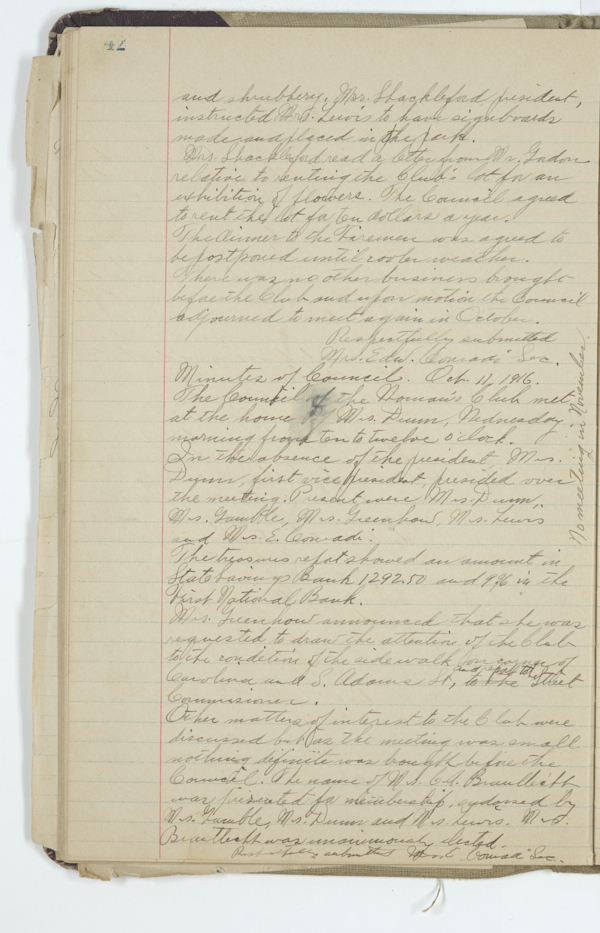 42
and shrubbery. Mrs. Shackleford president,
instructed Mrs. Lewis to have signboards
made and placed in the park.
Mrs. Shackleford read a letter from Mr.
relative to renting the Club's lot for an
exhibition of flowers. The Council agreed
to rent the lot for ten dollars a year.
The dinner to the Firemen was agreed to
be postponed until cooler weather.
There was no other business brought
before the Club and upon motion the Council
adjourned to meet again in October.
Respectfully submitted
Mrs. Edw. Conradi Sec.
Minutes of Council. Oct. 11, 1916.
The Council of the Woman's Club met
at the home of Mrs. Dunn, Wednesday
morning from ten to twelve o'clock.
In the absence of the president, Mrs.
Dunn, first vice president, presided over
the meeting. Present were Mrs. Dunn,
Mrs. Gamble, Mrs. Greenhow, Mrs. Lewis
and Mrs. E. Conradi.
The treasurers repot showed an amount in
State Savings Bank 1292.50 and in the
First National Bank.
Mrs. Greenhow announced that she was
requested to draw the attention of the Club
to the condetion of the side walk on corner of
Carolina and S. Adams St, and report to the Street
Commissioner.
Other matters of interest to the Club were
discussed but as the meeting was small
nothing definite was brought before the
Council. The name of Mrs.
was presented for membership, endorsed by
Mrs. Gamble, Mrs. Dunn and Mrs. Lewis. Mrs.
was unanimously elected.
Respectfully submitted Conradi Sec.
No meeting in November.